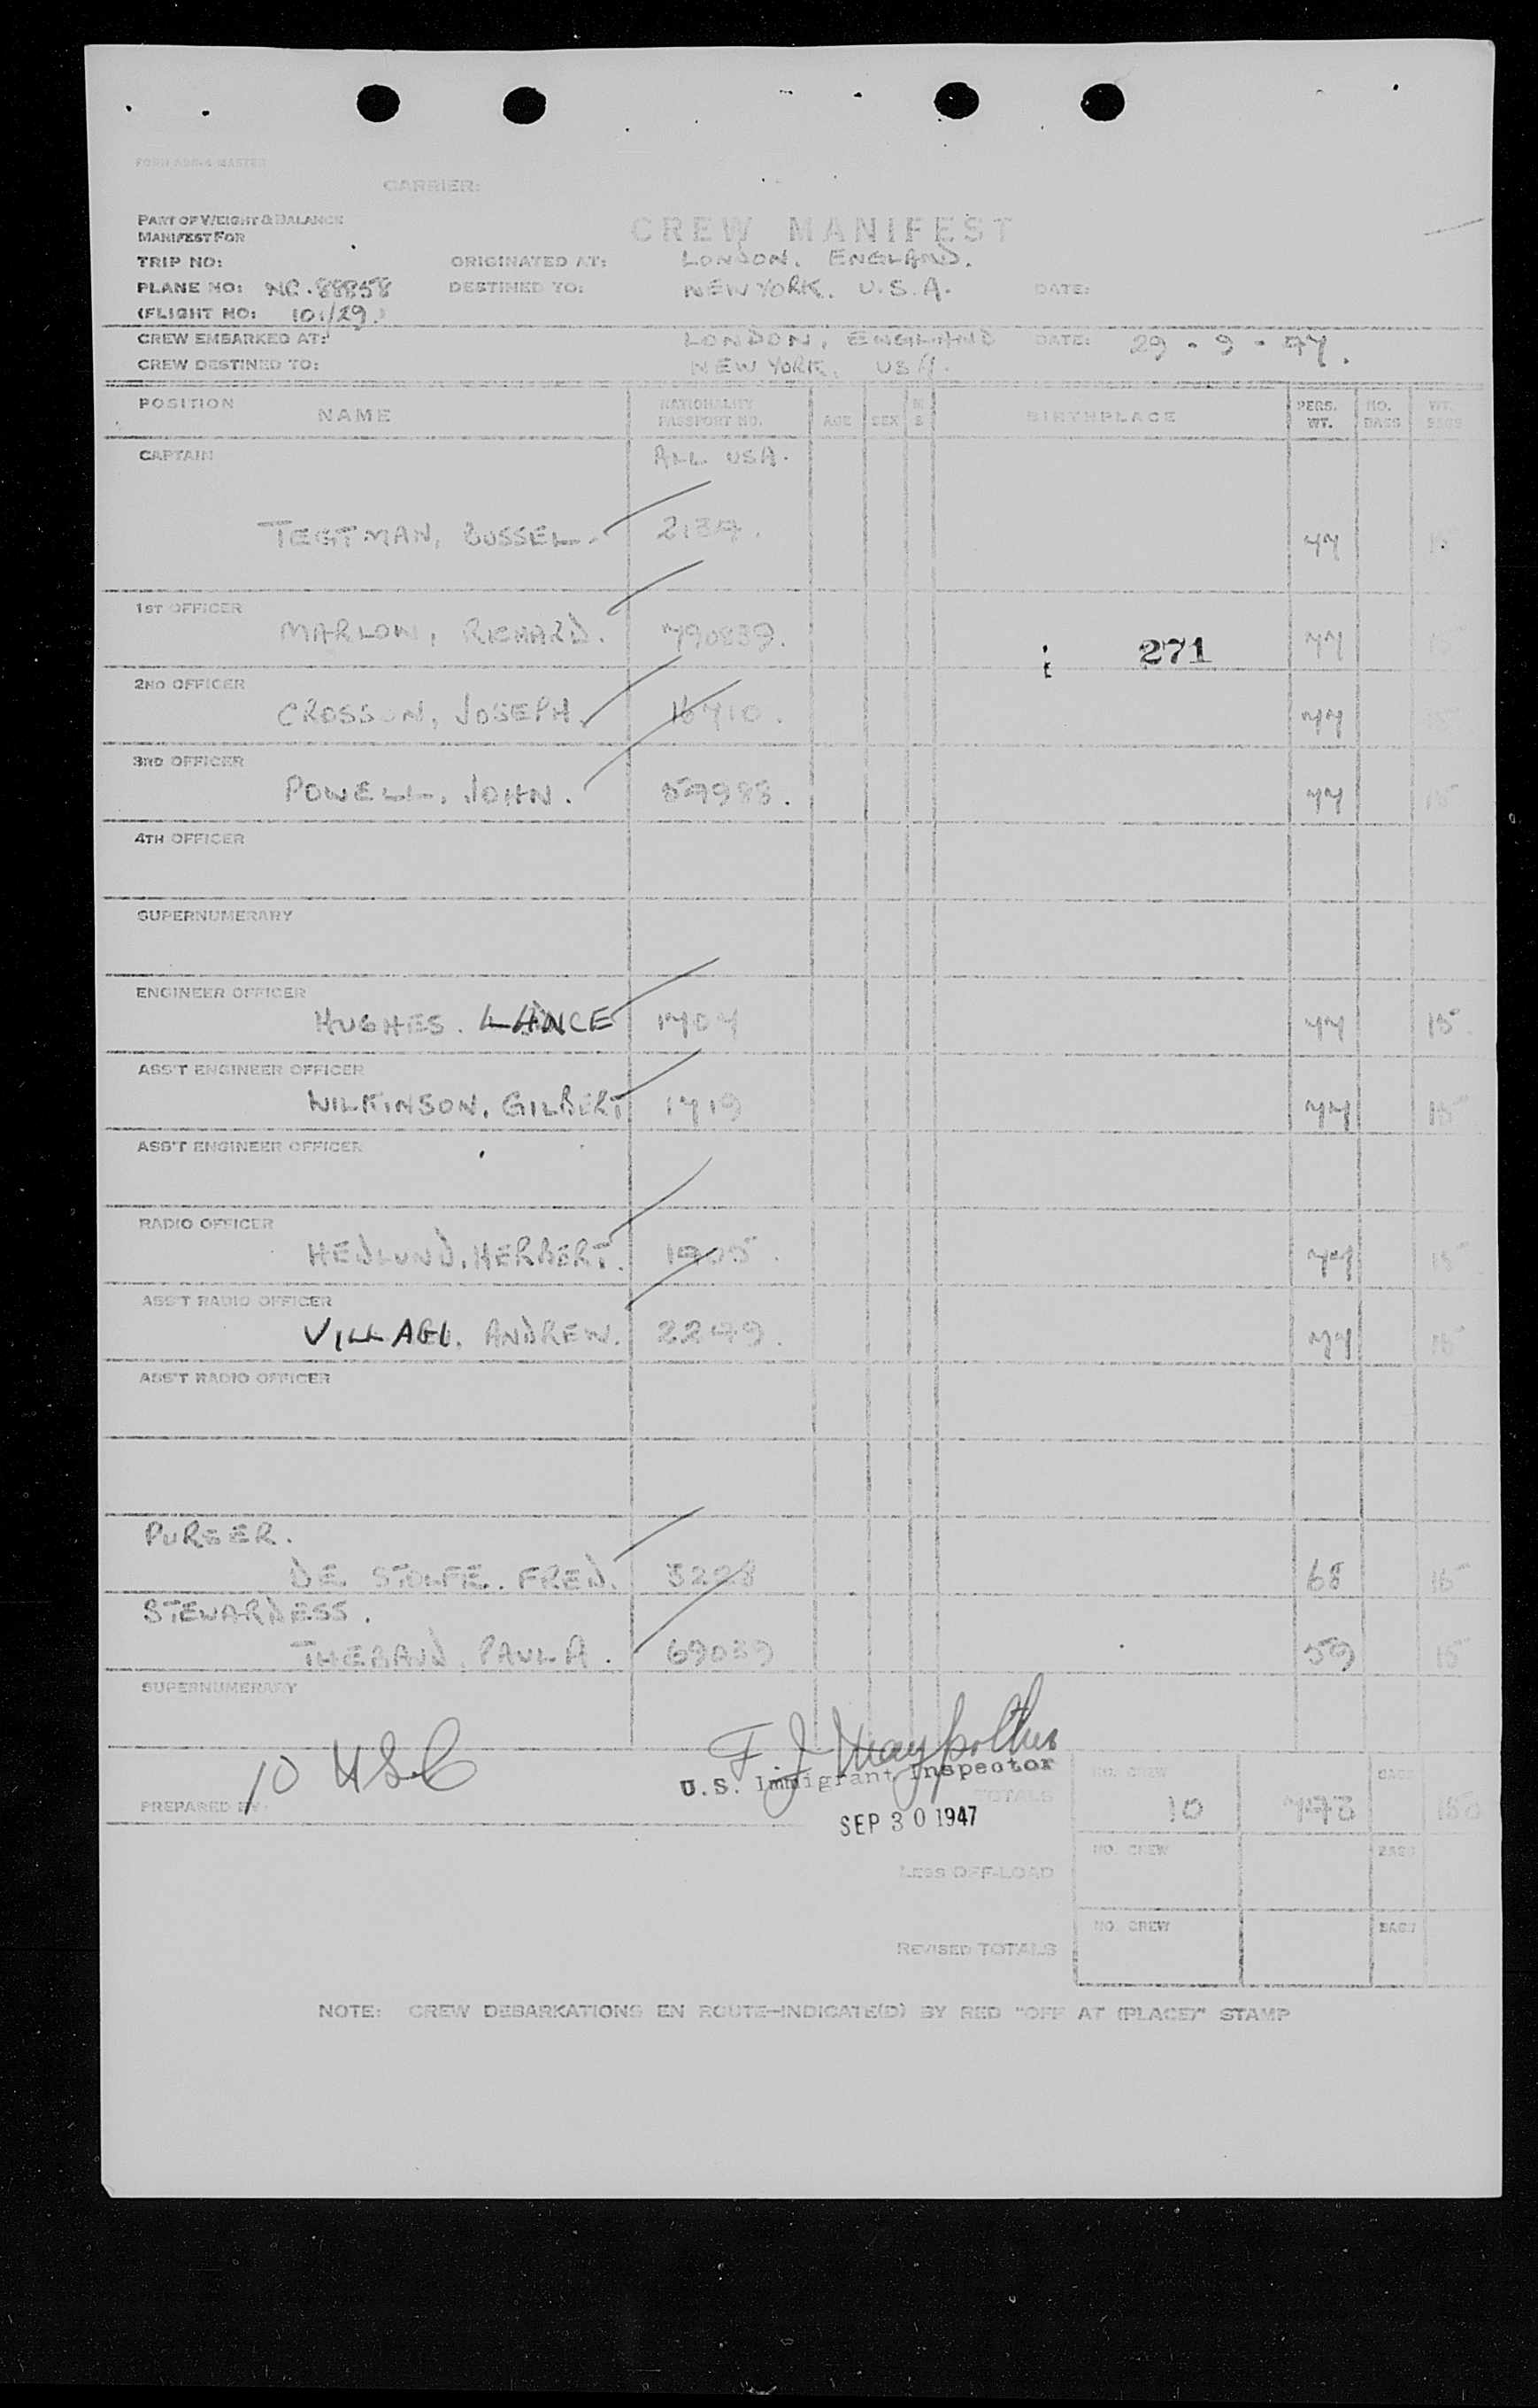 FORM ADR-4 MASTER
CARRIER:
PART OF WEIGHT & BALANCE
MANIFEST FOR
CREW MANIFEST
TRIP NO: ORIGINATED AT: LONDON, ENGLAND.
PLANE NO: NC-88858 DESTINED TO: NEW YORK. U.S.A. DATE:
(FLIGHT NO: 101/29.)
CREW EMBARKED AT: LONDON, ENGLAND DATE: 29 - 9 - 47.
CREW DESTINED TO: NEW YORK, USA.
POSITION NAME NATIONALITY PASSPORT NO. AGE SEX M S BIRTHPLACE PERS. WT. NO. BAGS WT. BAGS
CAPTAIN ALL USA.
TEGTMAN, RUSSEL. 77 15
1ST OFFICER
MARLOW, RICHARD. 790839. 271 77 15
2ND OFFICER
CROSSON, JOSEPH. 16710. 77 15
3RD OFFICER
POWELL, JOHN. 77 15
4TH OFFICER
SUPERNUMERARY
ENGINEER OFFICER
HUGHES. LANCE 1707 77 15
ASS'T ENGINEER OFFICER
WILKINSON, GILBERT 1719 77 15
ASS'T ENGINEER OFFICER
RADIO OFFICER
HEDLUND, HERBERT. 77 15
ASS'T RADIO OFFICER
ANDREW. 77 15
ASS'T RADIO OFFICER
PURSER.
DE STOLFE. FRED. 68 15
STEWARDESS.
THEBAUD, PAULA. 69039 59 15
SUPERNUMERARY
10 USC
U.S. Immigrant Inspector
PREPARED BY: TOTALS NO. CREW 10 743 BAGS 150
SEP 30 1947
LESS OFF-LOAD NO. CREW BAGS
REVISED TOTALS NO. CREW BAGS
NOTE: CREW DEBARKATIONS EN ROUTE—INDICATE(D) BY RED "OFF AT (PLACE)" STAMP